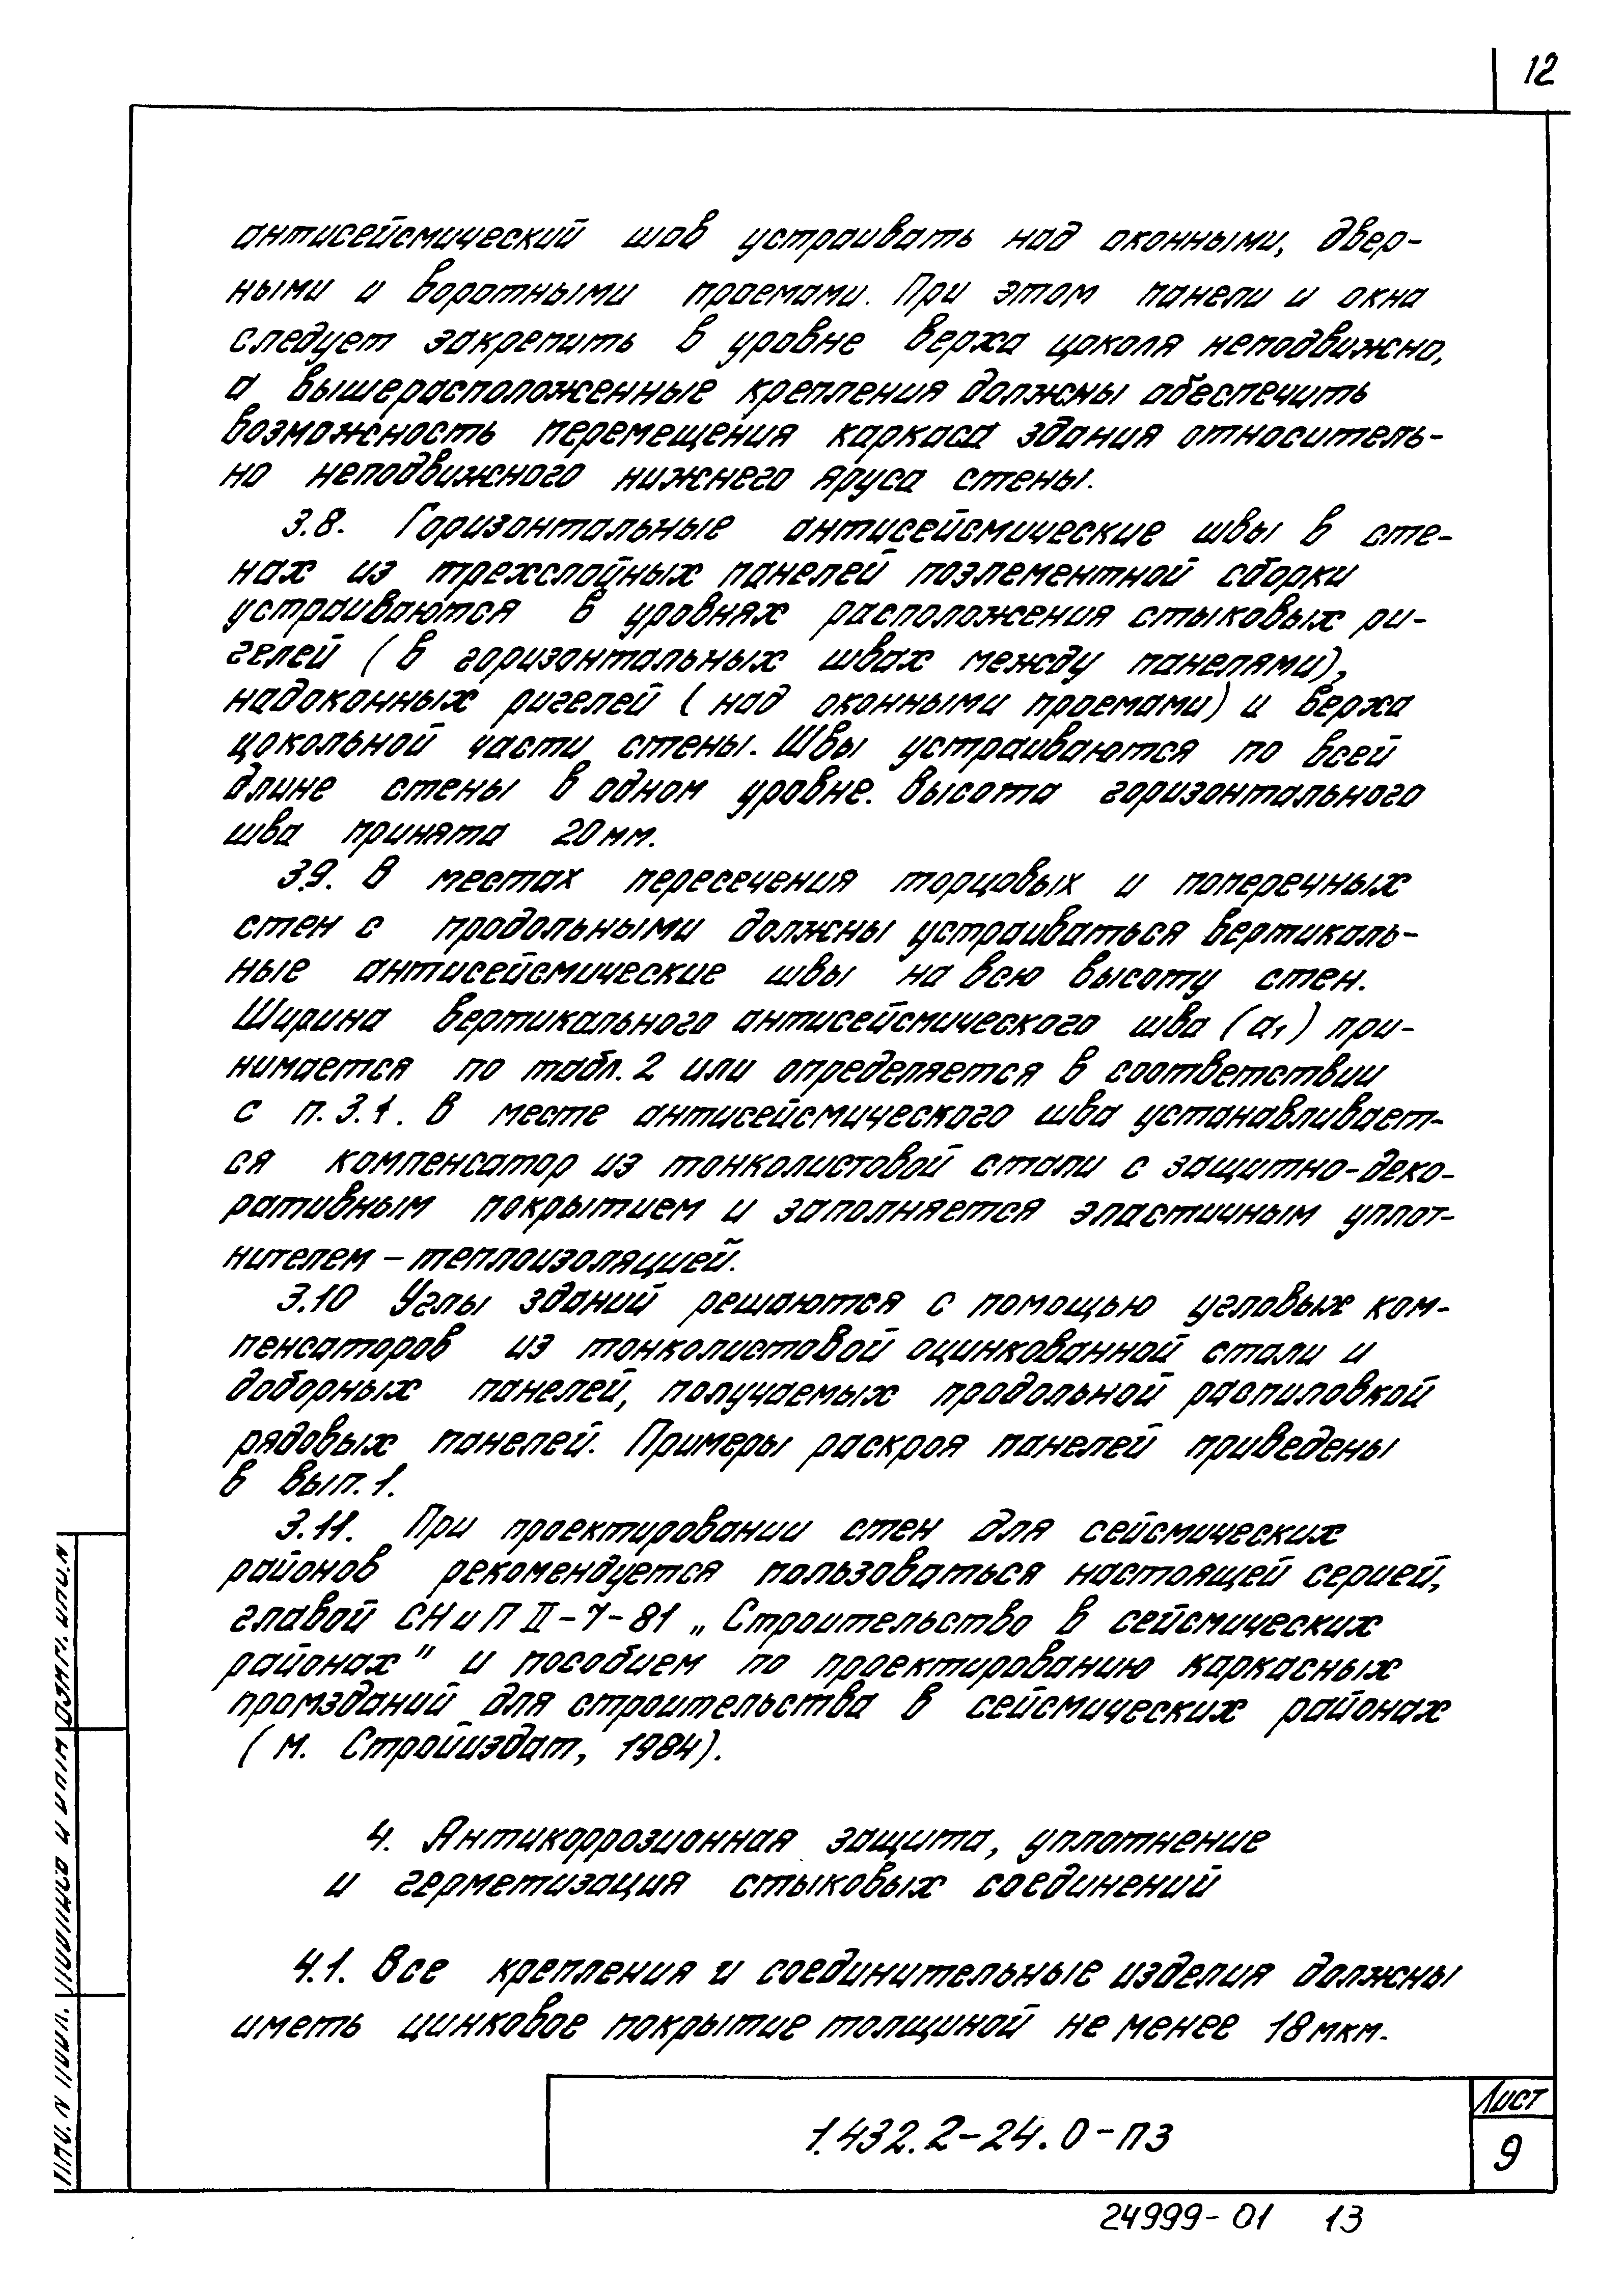 12
антисейсмический шов устраивать над оконными, двер-
ными и воротными проемами. При этом панели и окна
следует закрепить в уровне верха цоколя неподвижно,
а вышерасположенные крепления должны обеспечить
возможность перемещения каркаса здания относитель-
но неподвижного нижнего яруса стены.
3.8. Горизонтальные антисейсмические швы в сте-
нах из трехслойных панелей поэлементной сборки
устраиваются в уровнях расположения стыковых ри-
гелей (в горизонтальных швах между панелями),
надоконных ригелей (над оконными проемами) и верха
цокольной части стены. Швы устраиваются по всей
длине стены в одном уровне. Высота горизонтального
шва принята 20 мм.
3.9. В местах пересечения торцовых и поперечных
стен с продольными должны устраиваться вертикаль-
ные антисейсмические швы на всю высоту стен.
Ширина вертикального антисейсмического шва (а₁) при-
нимается по табл. 2 или определяется в соответствии
с п. 3.1. В месте антисейсмического шва устанавливает-
ся компенсатор из тонколистовой стали с защитно-деко-
ративным покрытием и заполняется эластичным уплот-
нителем – теплоизоляцией.
3.10 Углы зданий решаются с помощью угловых ком-
пенсаторов из тонколистовой оцинкованной стали и
доборных панелей, получаемых продольной распиловкой
рядовых панелей. Примеры раскроя панелей приведены
в вып. 1.
3.11. При проектировании стен для сейсмических
районов рекомендуется пользоваться настоящей серией,
главой СНиП II-7-81 „Строительство в сейсмических
районах" и пособием по проектированию каркасных
промзданий для строительства в сейсмических районах
(М. Стройиздат, 1984).
4. Антикоррозионная защита, уплотнение
и герметизация стыковых соединений
4.1. Все крепления и соединительные изделия должны
иметь цинковое покрытие толщиной не менее 18 мкм.
1.432.2-24.0-ПЗ
Лист
9
24999-01 13